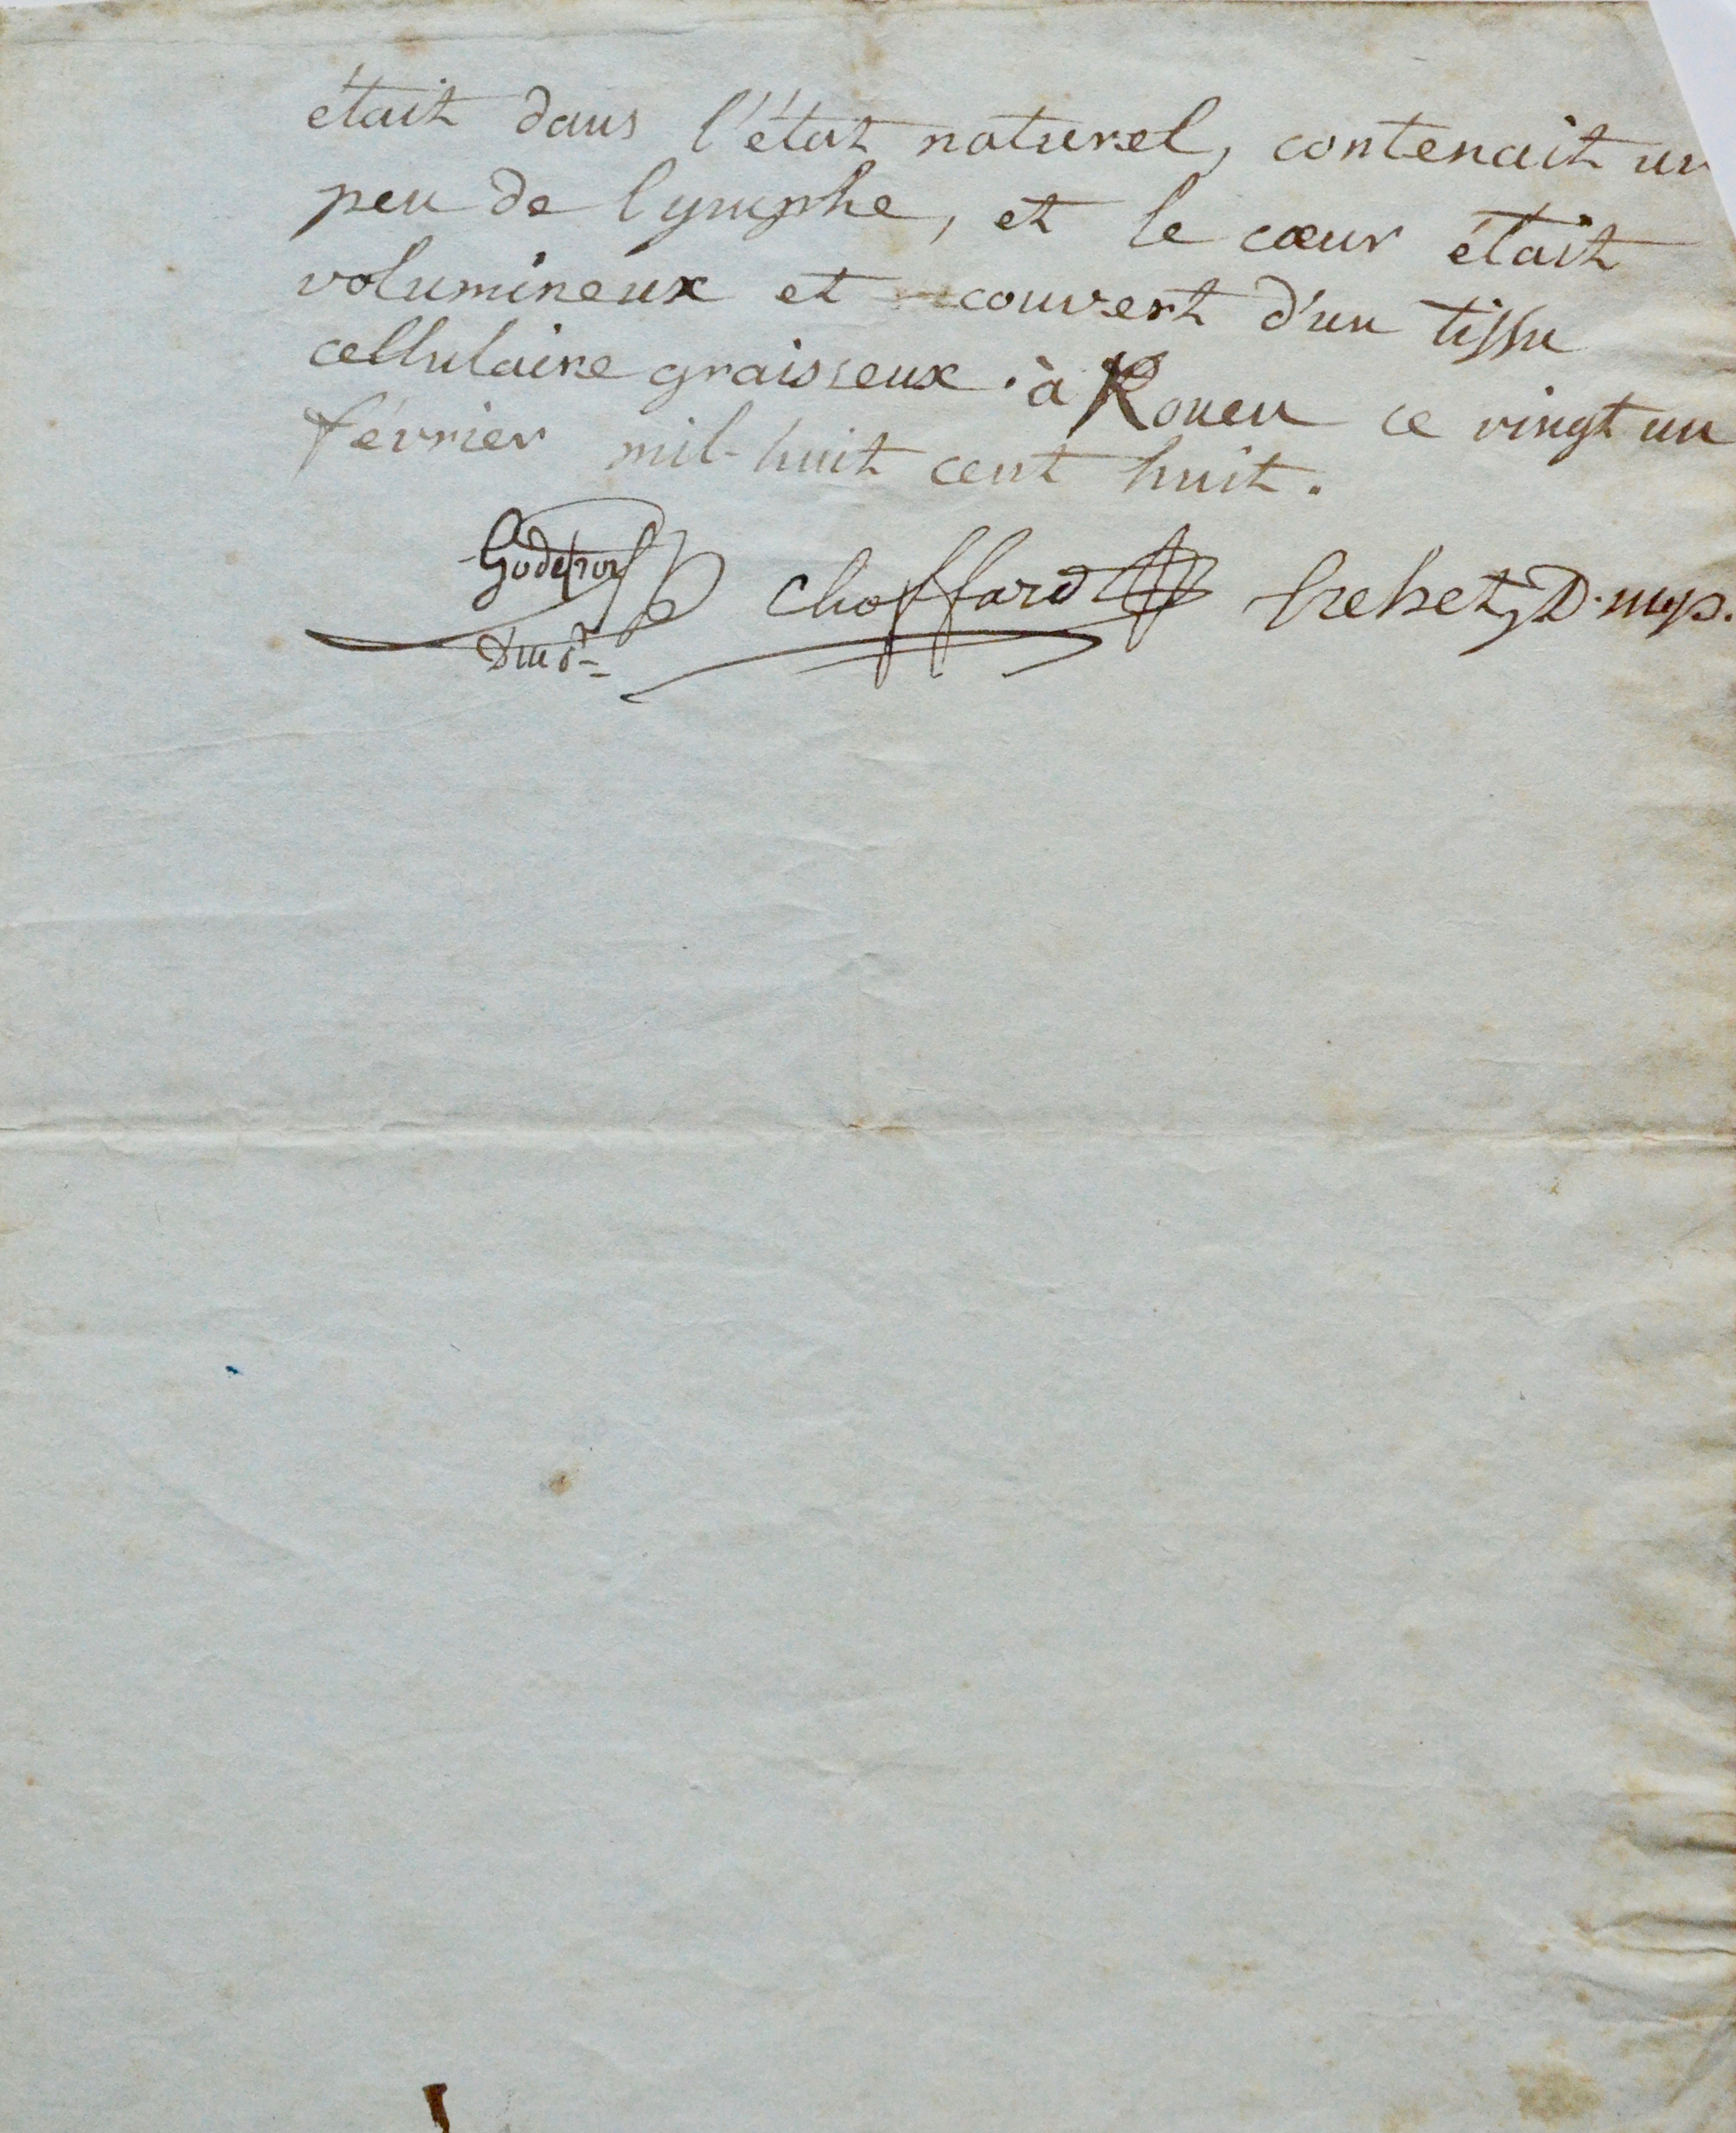 était dans l'état naturel, contenait un
peu de lymphe, et le cœur était
volumineux et couvert d'un tissu
cellulaire graisseux. à Rouen ce vingt un
février mil-huit cent huit.
Godefroy Choffard hebet, D. m. p.